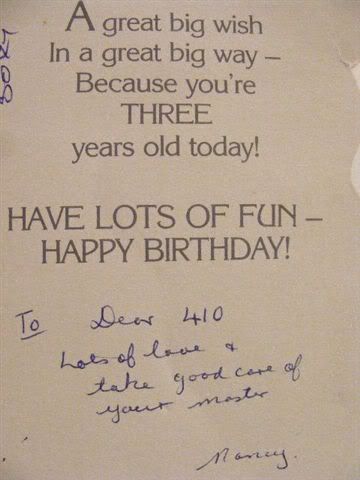 A great big wish
In a great big way –
Because you're
THREE
years old today!
HAVE LOTS OF FUN –
HAPPY BIRTHDAY!
To Dear 410
Lots of love &
take good care of
your master
Nancy.